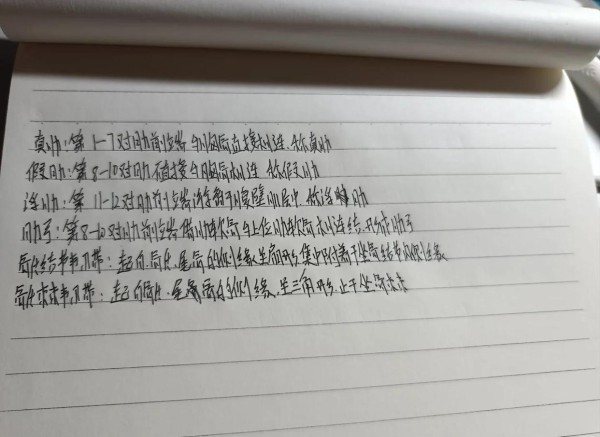 真肋：第1-7对肋前端与胸骨直接相连，称真肋
假肋：第8-10对肋不直接与胸骨相连 称假肋
浮肋：第11-12对肋前端游离于腹壁肌层中，称浮肋
肋弓：第8-10对肋前端借肋软骨与上位肋软骨相连结，形成肋弓
骶结节韧带：起自骶、尾骨的侧缘，呈扇形，集中附着于坐骨结节内侧缘
骶棘韧带：起自骶、尾骨的侧缘，呈三角形，止于坐骨棘